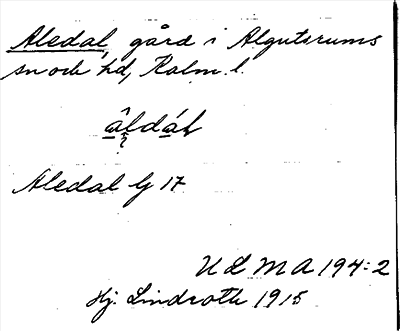 Aledal, gård i Algutsrums
sn och hd, Kalm. l.
âldál
Aledal G 17
ULMA 194:2
Hj. Lindroth 1915